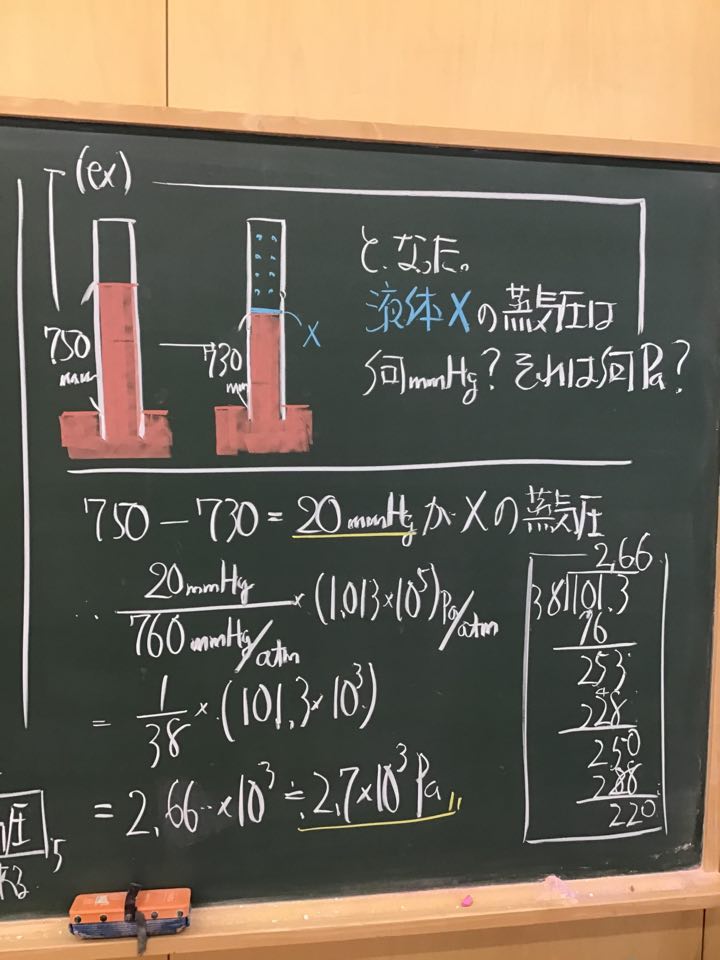 (ex)
750
mm
730
mm
X
と、なった。
液体Xの蒸気圧は
何mmHg？それは何Pa？
750 − 730 = 20 mmHg が Xの蒸気圧
20mmHg
760 mmHg/atm
× (1.013×10⁵) Pa/atm
= 1/38 × (101.3×10³)
= 2.66‥×10³ ≒ 2.7×10³ Pa 〃
2.66
38)101.3
76
253
228
250
228
220
圧